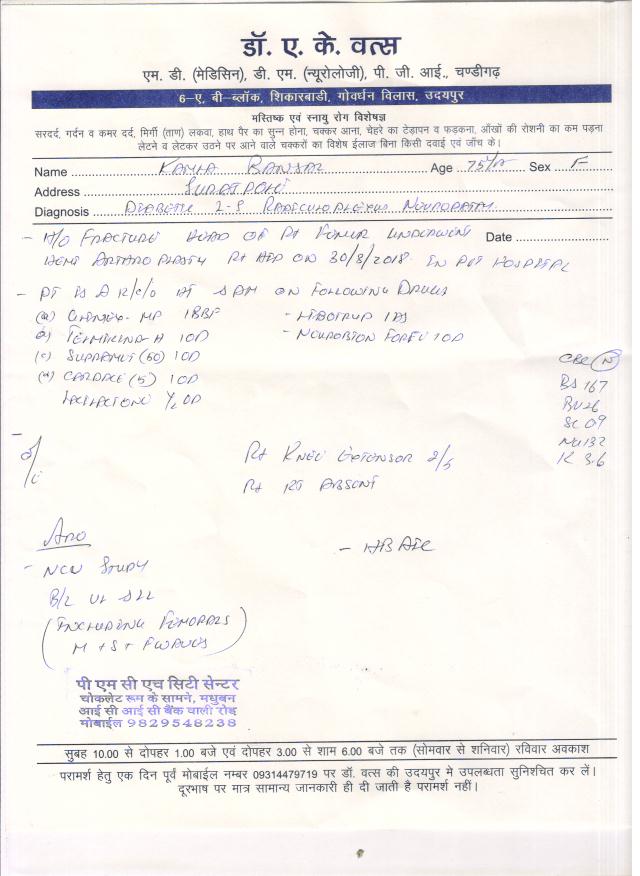 डॉ. ए. के. वत्स
एम. डी. (मेडिसिन), डी. एम. (न्यूरोलोजी), पी. जी. आई., चण्डीगढ़
6-ए, बी-ब्लॉक, शिकारबाडी, गोवर्धन विलास, उदयपुर
मस्तिष्क एवं स्नायु रोग विशेषज्ञ
सरदर्द, गर्दन व कमर दर्द, मिर्गी (ताण) लकवा, हाथ पैर का सुन्न होना, चक्कर आना, चेहरे का टेड़ापन व फड़कना, आँखों की रोशनी का कम पड़ना
लेटने व लेटकर उठने पर आने वाले चक्करों का विशेष ईलाज बिना किसी दवाई एवं जाँच के।
Name KAMLA BANSAL Age 75 Sex F
Address
Diagnosis DIABETIC RADICULOPLEXUS NEUROPATHY
- H/O FRACTURE HEAD OF Rt FEMUR UNDERWENT Date
HEMI ARTHROPLASTY Rt HIP ON 30/8/2018 IN HOSPITAL
- PT IS A K/C/O ON FOLLOWING DRUGS
(a)
(b) 1OD - NEUROBION FORTE 1OD
(c) (60) 1OD
(d) CARDACE (5) 1OD
½ OD
CBC (N)
BS 167
BU 26
SC 09
Na 132
K 3.6
O/E
Rt KNEE EXTENSOR 2/5
Rt ABSENT
Adv
- HBA1C
- NCV STUDY
B/L UL
(INCLUDING FEMORALS
M + S + F WAVES)
पी एम सी एच सिटी सेन्टर
चोकलेट रूम के सामने, मधुबन
आई सी आई सी बैंक वाली रोड़
मोबाईल 9829548238
सुबह 10.00 से दोपहर 1.00 बजे एवं दोपहर 3.00 से शाम 6.00 बजे तक (सोमवार से शनिवार) रविवार अवकाश
परामर्श हेतु एक दिन पूर्व मोबाईल नम्बर 09314479719 पर डॉ. वत्स की उदयपुर मे उपलब्धता सुनिश्चित कर लें।
दूरभाष पर मात्र सामान्य जानकारी ही दी जाती है परामर्श नहीं।